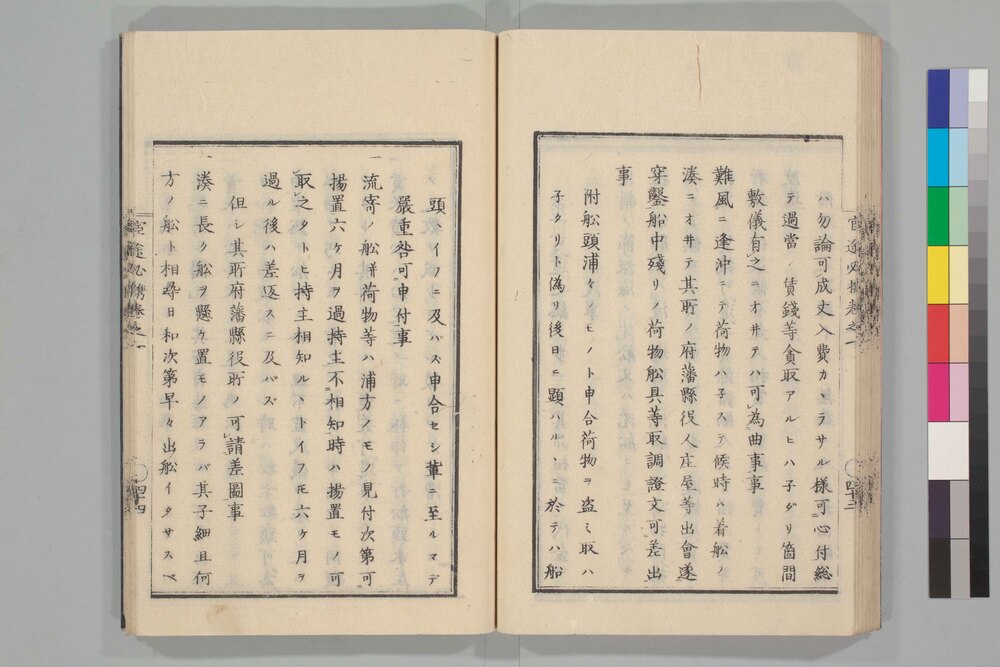 ハ勿論可成丈入費カヽラサル様可心付総
テ過當ノ賃錢等貪取アルヒハ子ダリ箇間
敷儀有之ニオ井テハ可為曲事事
難風ニ逢沖ニテ荷物ハ子ステ候時ハ着船ノ
湊ニオ井テ其所ノ府藩縣役人庄屋等出會遂
穿鑿船中殘リノ荷物舩具等取調證文可差出
事
附舩頭浦々ノモノト申合荷物ヲ盗ミ取ハ
子タリト偽リ後日ニ顯ハルヽニ於テハ船
頭イノニ及ハス申合セシ輩ニ至ルマデ
嚴重咎可申付事
一流寄ノ舩并荷物等ハ浦方ノモノ見付次第可
揚置六ケ月ヲ過持主不相知時ハ揚置モノ可
取之タトヒ持主相知ルヽトイフ𪜈六ケ月ヲ
過ル後ハ差返スニ及バズ
但シ其所府藩縣役所ノ可請差圖事
一湊ニ長ク舩ヲ懸ケ置モノアラバ其子細且何
方ノ舩ト相尋日和次第早々出舩イタサスベ
官途必携巻之一
四十三
四十四